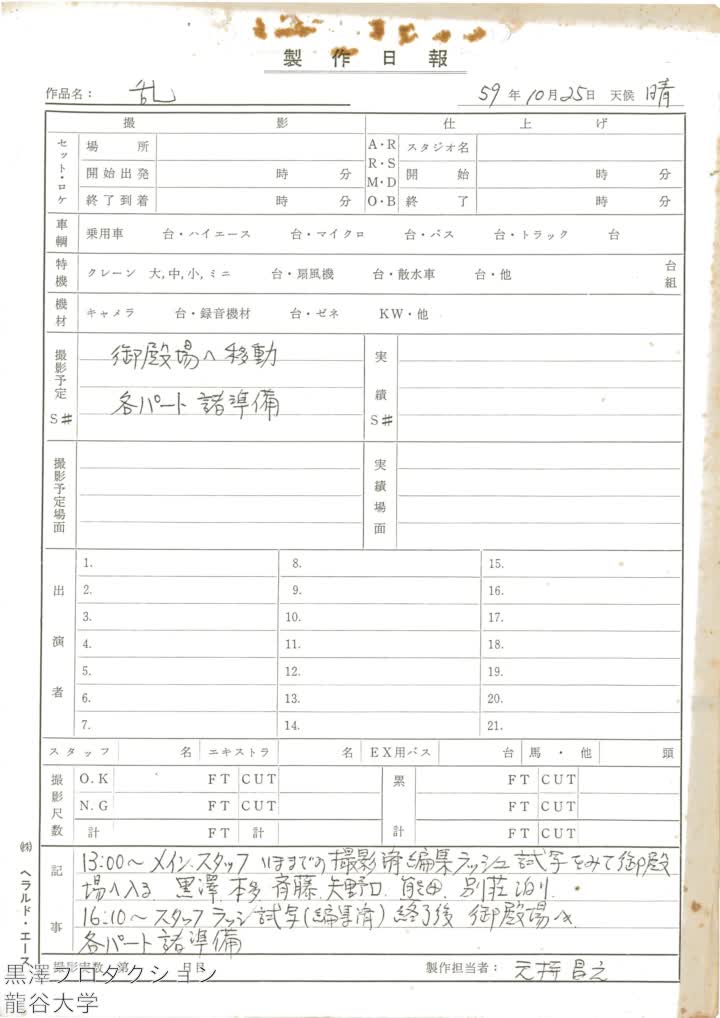 製作日報
作品名： 乱 59年10月25日 天候 晴
撮影 仕上げ
セット・ロケ 場所 A・R スタジオ名
開始出発 時 分 R・S 開始 時 分
M・D
終了到着 時 分 O・B 終了 時 分
車輌 乗用車 台・ハイエース 台・マイクロ 台・バス 台・トラック 台
特機 クレーン 大,中,小,ミニ 台・扇風機 台・散水車 台・他 台組
機材 キャメラ 台・録音機材 台・ゼネ KW・他
撮影予定 S# 御殿場へ移動 実績 S#
各パート 諸準備
撮影予定場面 実績場面
出演者
1. 8. 15.
2. 9. 16.
3. 10. 17.
4. 11. 18.
5. 12. 19.
6. 13. 20.
7. 14. 21.
スタッフ 名 エキストラ 名 EX用バス 台 馬・他 頭
撮影尺数 O.K FT CUT 累計 FT CUT
N.G FT CUT FT CUT
計 FT 計 FT CUT
記事 13:00〜メイン.スタッフ いままでの撮影済編集ラッシュ試写をみて御殿
場へ入る 黒澤. 本多. 斉藤. 矢野口. 熊田. 別荘泊り.
16:10〜スタッフ ラッシュ試写(編集済)終了後 御殿場へ.
各パート諸準備
撮影実数 第 日目 製作担当者：
㈱ヘラルド・エース
黒澤プロダクション
龍谷大学